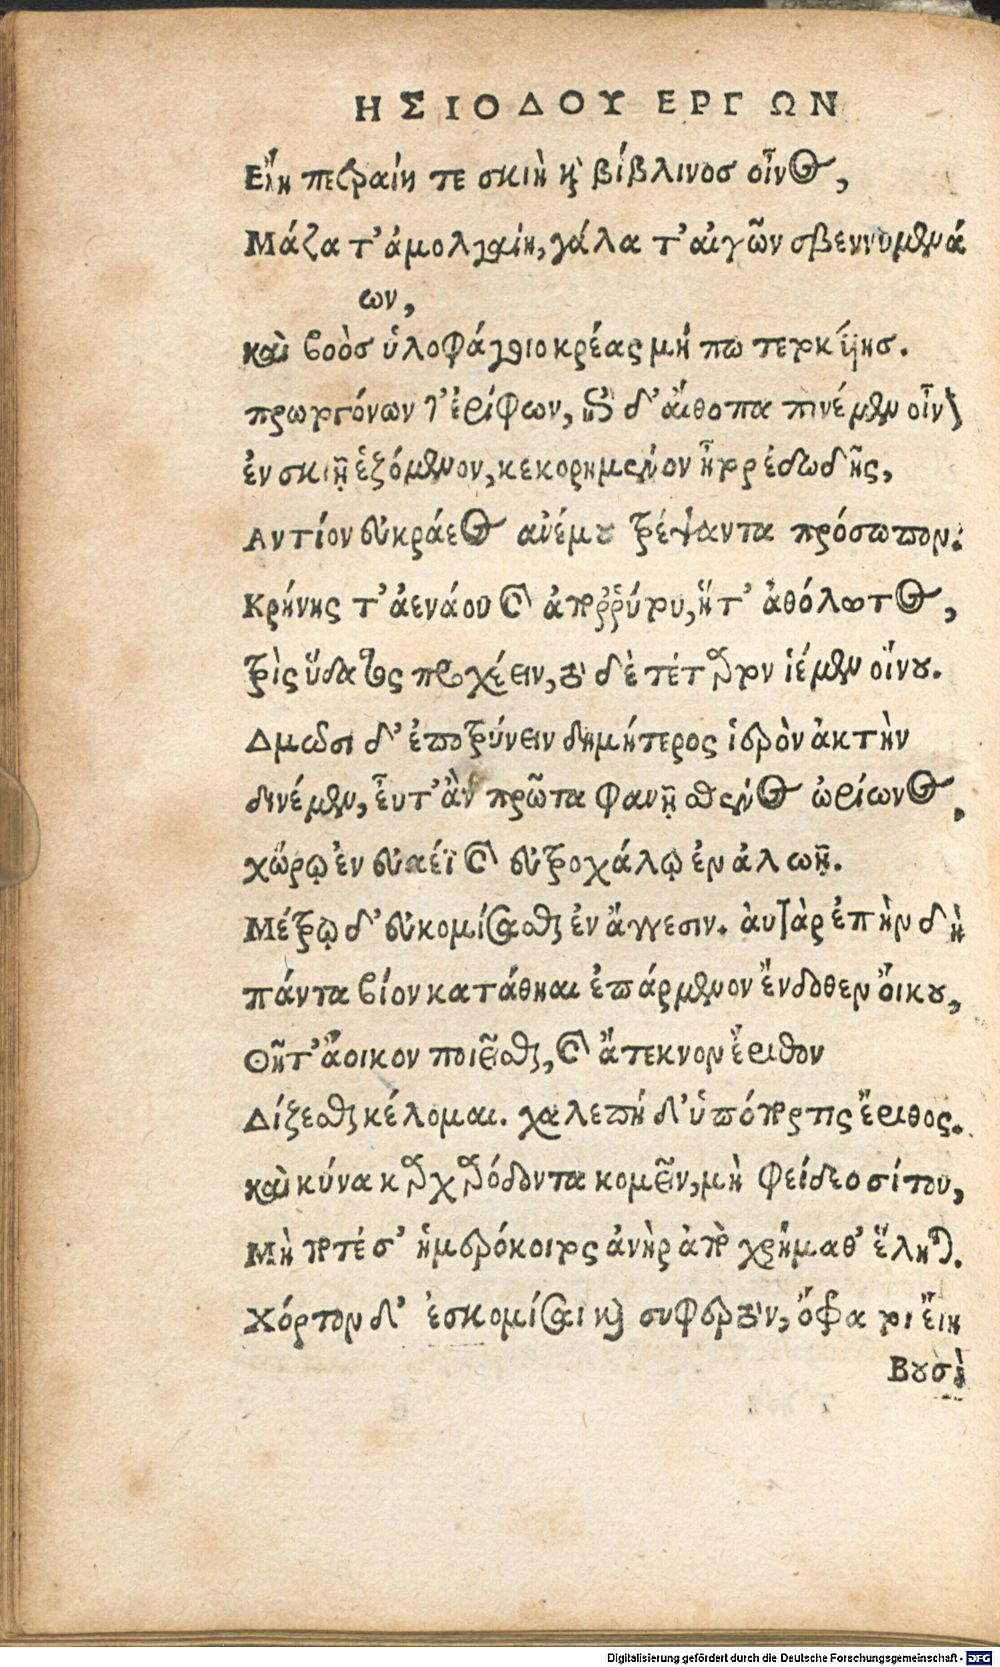 ΗΣΙΟΔΟΥ ΕΡΓΩΝ
Εἴη πετραίη τε σκιὴ κỳ βίβλινος οἶνος,
Μάζα τ' ἀμολγαίη, γάλα τ' αἰγῶν σβεννυμενά
ων,
καὶ βοὸς ὑλοφάγοιο κρέας μή πω τετοκύιης.
πρωτογόνων τ' ἐρίφων, ἐπὶ δ' αἴθοπα πινέμεν οἶνον
ἐν σκιῇ ἑζόμενον, κεκορημένον ἦτορ ἐδωδῆς,
Αντίον εὐκράεος ἀνέμου τρέψαντα πρόσωπον.
Κρήνης τ' ἀενάου καὶ ἀπορρύτου, ἥτ' ἀθόλωτος,
τρὶς ὕδατος προχέειν, τὸ δὲ τέτρατον ἱέμεν οἴνου.
Δμωσι δ' ἐποτρύνειν δημήτερος ἱερὸν ἀκτὴν
δινέμεν, εὖτ' ἂν πρῶτα φανῇ σθένος ὠρίωνος.
χώρῳ ἐν εὐαέϊ καὶ εὐτροχάλῳ ἐν ἀλωῇ.
Μέτρῳ δ' εὐκομίσασθαι ἐν ἄγγεσιν. ἀυτὰρ ἐπὴν δὴ
πάντα βίον κατάθηαι ἐπάρμενον ἔνδοθεν οἴκου,
Θῆτ' ἄοικον ποιεῖσθαι, καὶ ἄτεκνον ἔριθον
Δίζεσθαι κέλομαι. χαλεπὴ δ' ὑπόπορτις ἔριθος.
καὶ κύνα καρχαρόδοντα κομεῖν, μὴ φείδεο σίτου,
Μὴ ποτέ σ' ἡμερόκοιτος ἀνὴρ ἀπὸ χρήμαθ' ἕληται.
Χόρτον δ' ἐσκομίσαι καὶ συρφετὸν, ὄφρα τοι εἴη
Βουσὶ
Digitalisierung gefördert durch die Deutsche Forschungsgemeinschaft - DFG